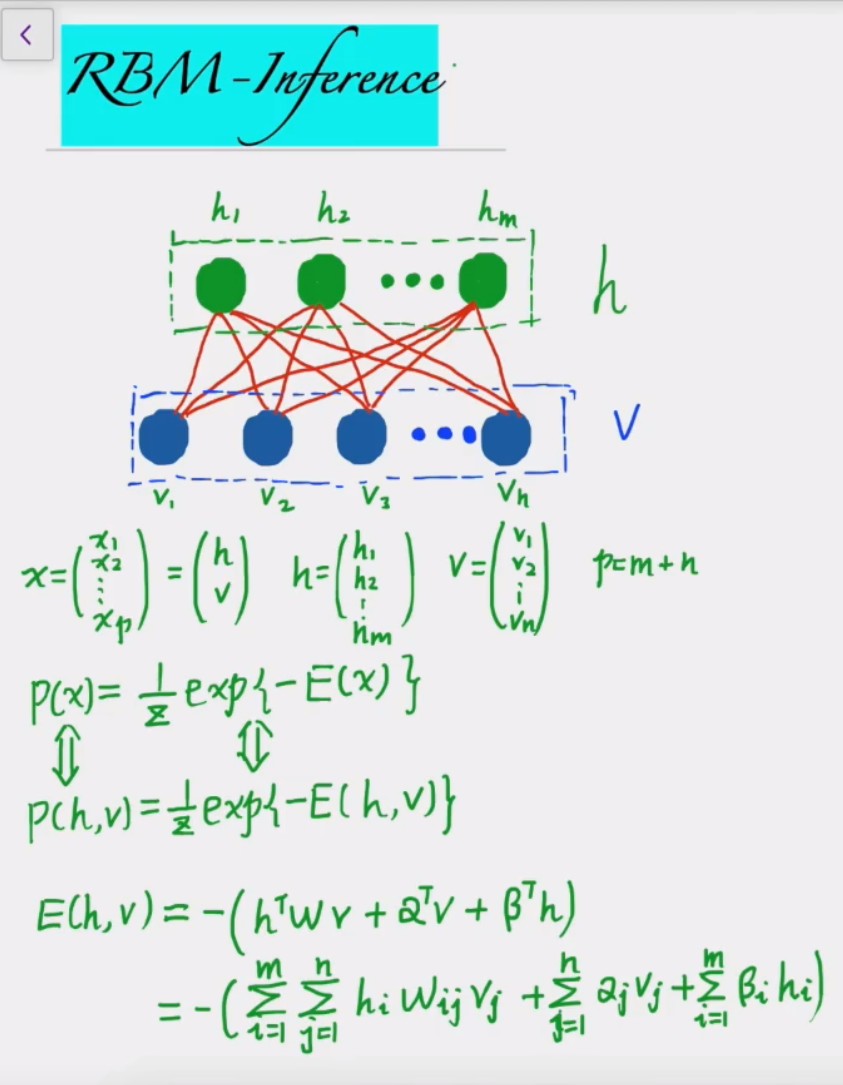 RBM-Inference
h₁ h₂ hₘ
h
v
v₁ v₂ v₃ vₙ
x=(x₁ x₂ ⋮ xₚ)=(h v) h=(h₁ h₂ ⋮ hₘ) v=(v₁ v₂ ⋮ vₙ) p=m+n
P(x)= 1/z exp{-E(x)}
⇕ ⇕
P(h,v)=1/z exp{-E(h,v)}
E(h,v)=-(hᵀwv+αᵀv+βᵀh)
=-(∑ᵢ₌₁ᵐ ∑ⱼ₌₁ⁿ hᵢ wᵢⱼ vⱼ +∑ⱼ₌₁ⁿ αⱼvⱼ+∑ᵢ₌₁ᵐ βᵢhᵢ)